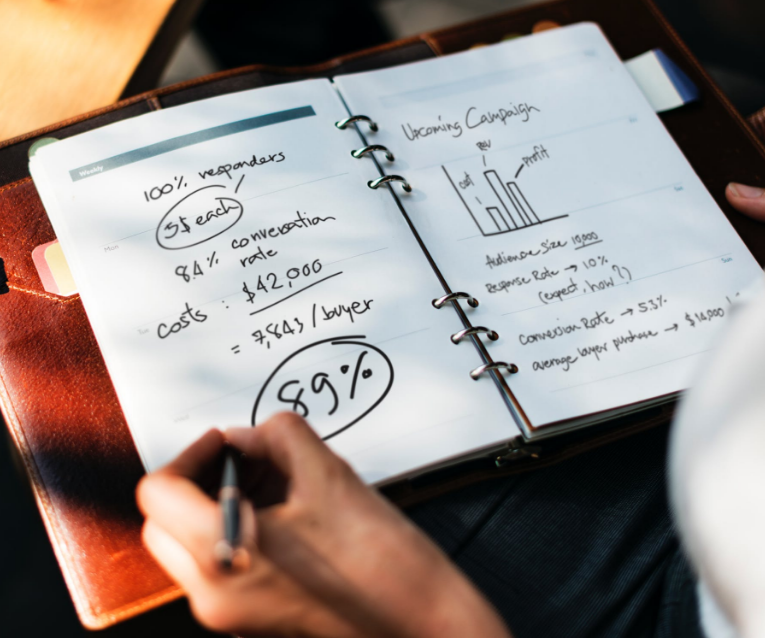 Weekly
100% responders
5$ each
Mon
8.4% conversation
rate
costs : $42,000
= 7,843 /buyer
89%
Upcoming Campaign
Rev
cost
Profit
Audience Size 10,000
Response Rate → 10%
(expect, how?)
Conversion Rate → 5.3%
average buyer purchase → $14,000